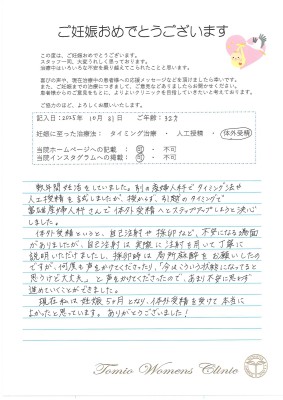 ご妊娠おめでとうございます
この度は、ご妊娠おめでとうございます。
スタッフ一同、大変うれしく思っております。
治療中はいろいろな不安を乗り越えてこられたことと思います。
喜びの声や、現在治療中の患者様への応援メッセージなどを頂けましたら幸いです。
また、ご妊娠までの治療につきまして、ご意見などありましたらお聞かせください。
患者様からのご意見をもとに、よりよいクリニックを目指していきたいと考えております。
ご協力のほど、よろしくお願いいたします。
記入日：2025年 10月 31日 ご年齢：
妊娠に至った治療法： タイミング治療 ・ 人工授精 ・ 体外受精
当院ホームページへの記載 ： 可 ・ 不可
当院インスタグラムへの掲載 ： 可 ・ 不可
数年間妊活をしていました。別の産婦人科でタイミング法や
人工授精を試しましたが、授からず、引越のタイミングで
産婦人科さんで体外受精へとステップアップしようと決心
しました。
体外受精というと、自己注射や採卵など、不安になる場面
がありましたが、自己注射は実際に注射を用いて丁寧に
説明いただけましたし、採卵時は局所麻酔をお願いしたの
ですが、何度も声をかけてくださったり、「今はこういう状態になってると
思うけど大丈夫」と声をかけてくださったので、あまり不安に思わず
進めていくことができました。
現在私は妊娠5ヶ月となり、体外受精を受けて本当に
よかったと思っています。ありがとうございました！
Tomio Womens Clinic